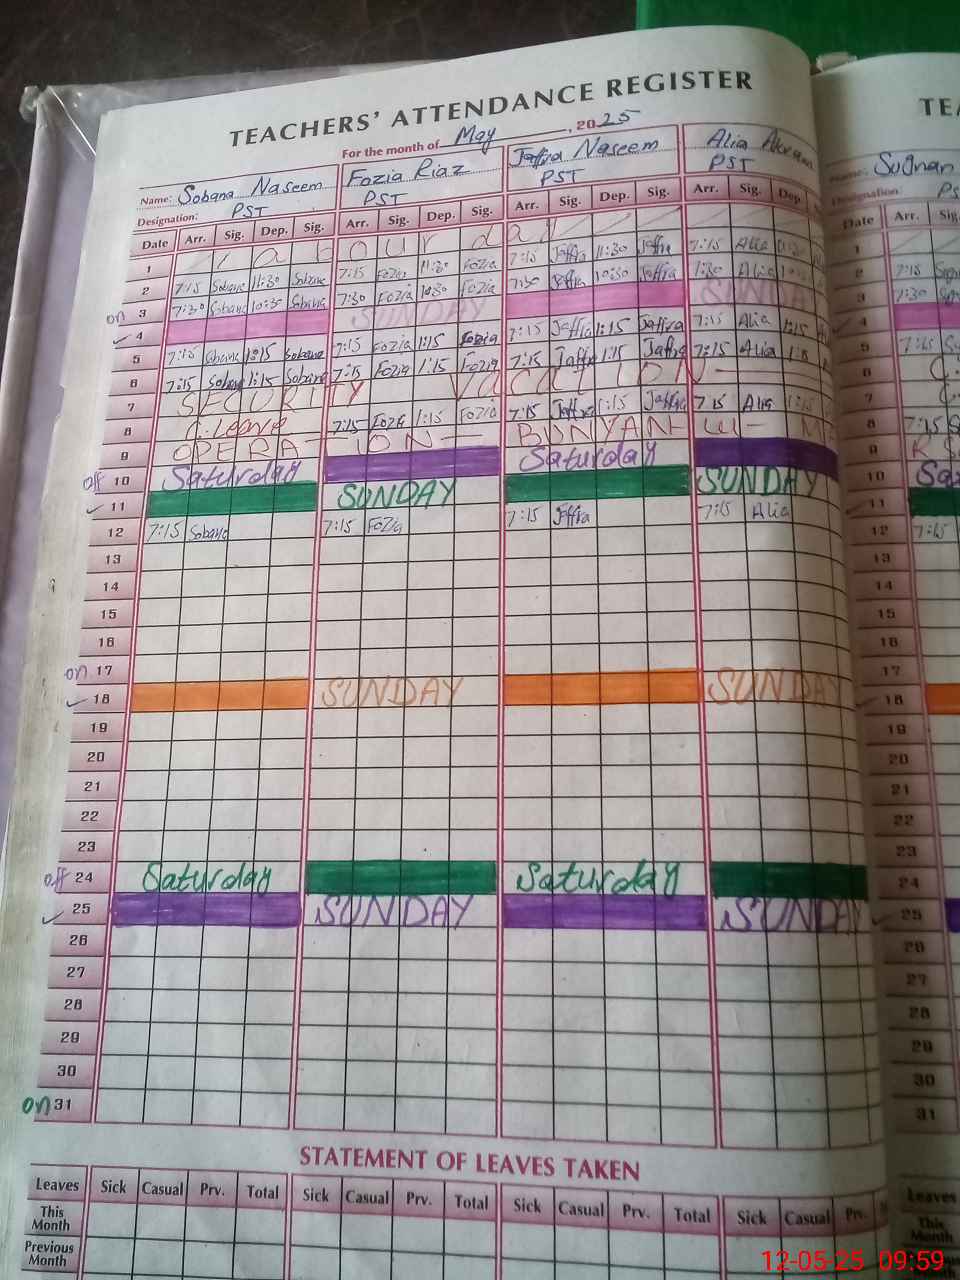 TEACHERS' ATTENDANCE REGISTER
TEA
For the month of May, 2025
Name: Sobana Naseem Fozia Riaz Jaffra Naseem Alia
Designation: PST PST PST PST
Date Arr. Sig. Dep. Sig. Arr. Sig. Dep. Sig. Arr. Sig. Dep. Sig. Arr. Sig. Dep. Date Arr. Sig.
1
2 7:15 Sobana 11:30 Sobana 7:15 Fozia 11:30 Fozia 7:15 Jaffra 11:30 Jaffra 7:15 Alia 2 7:15
on 3 7:30 Sobana 10:30 Sobana 7:30 Fozia 10:30 Fozia 7:30 Jaffra 10:30 Jaffra 7:30 Alia 3 7:30
✓ 4 SUNDAY SUNDAY 4
5 7:15 Sobana 1:15 Sobana 7:15 Fozia 1:15 Fozia 7:15 Jaffra 1:15 Jaffra 7:15 Alia 1:15 5 7:15
6 7:15 Sobana 1:15 Sobana 7:15 Fozia 1:15 Fozia 7:15 Jaffra 1:15 Jaffra 7:15 Alia 1:15 6
7 SECURITY VACATION 7
8 C.Leave 7:15 Fozia 1:15 Fozia 7:15 Jaffra 1:15 Jaffra 7:15 Alia 1:15 8 7:15
9 OPERATION BUNYAN-U- 9
off 10 Saturday Saturday 10
✓ 11 SUNDAY SUNDAY 11
12 7:15 Sobana 7:15 Fozia 7:15 Jaffra 7:15 Alia 12 7:15
13 13
14 14
15 15
16 16
on 17 17
✓ 18 SUNDAY SUNDAY 18
19 19
20 20
21 21
22 22
23 23
off 24 Saturday Saturday 24
✓ 25 SUNDAY SUNDAY 25
26 26
27 27
28 28
29 29
30 30
on 31 31
STATEMENT OF LEAVES TAKEN
Leaves Sick Casual Prv. Total Sick Casual Prv. Total Sick Casual Prv. Total Sick Casual Prv. Leaves
This Month This Month
Previous Month
12-05-25 09:59